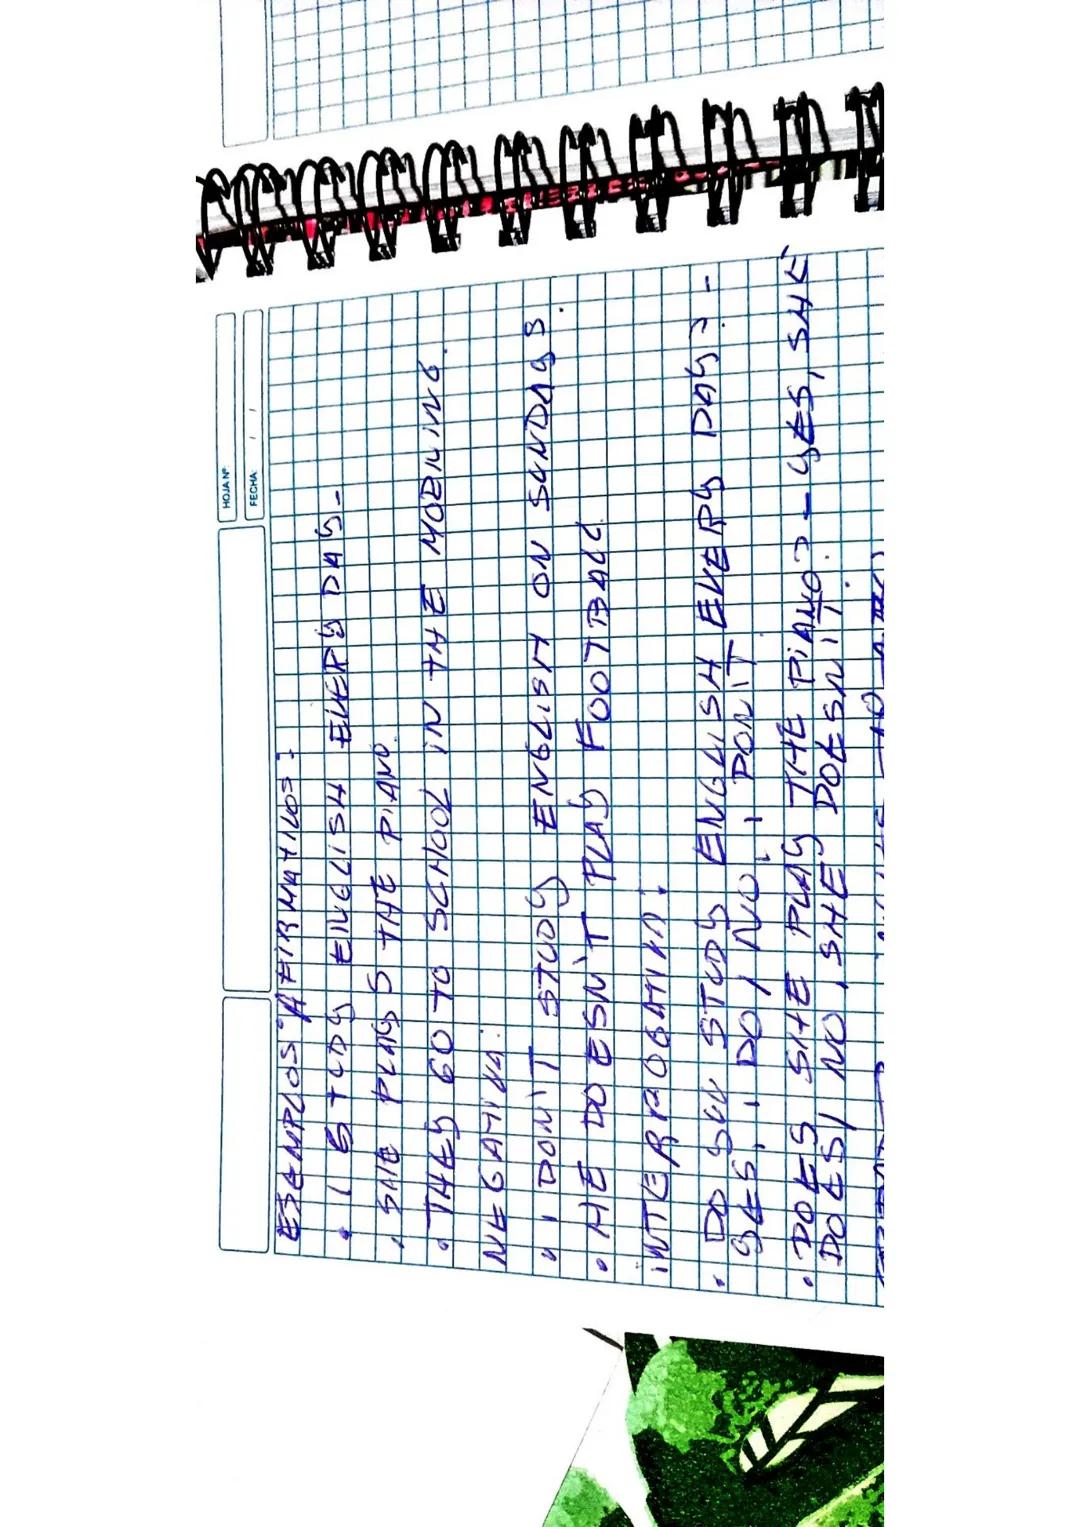 HOJA Nº
FECHA: / /
EJEMPLOS AFIRMATIVOS:
• I STUDY ENGLISH EVERY DAY-
• SHE PLAYS THE PIANO.
• THEY GO TO SCHOOL IN THE MORNING.
NEGATIVA:
• I DON'T STUDY ENGLISH ON SUNDAYS.
• HE DOESN'T PLAY FOOTBALL.
INTERROGATIVA:
• DO YOU STUDY ENGLISH EVERY DAY? -
YES, I DO / NO, I DON'T.
• DOES SHE PLAY THE PIANO? - YES, SHE
DOES / NO, SHE DOESN'T.